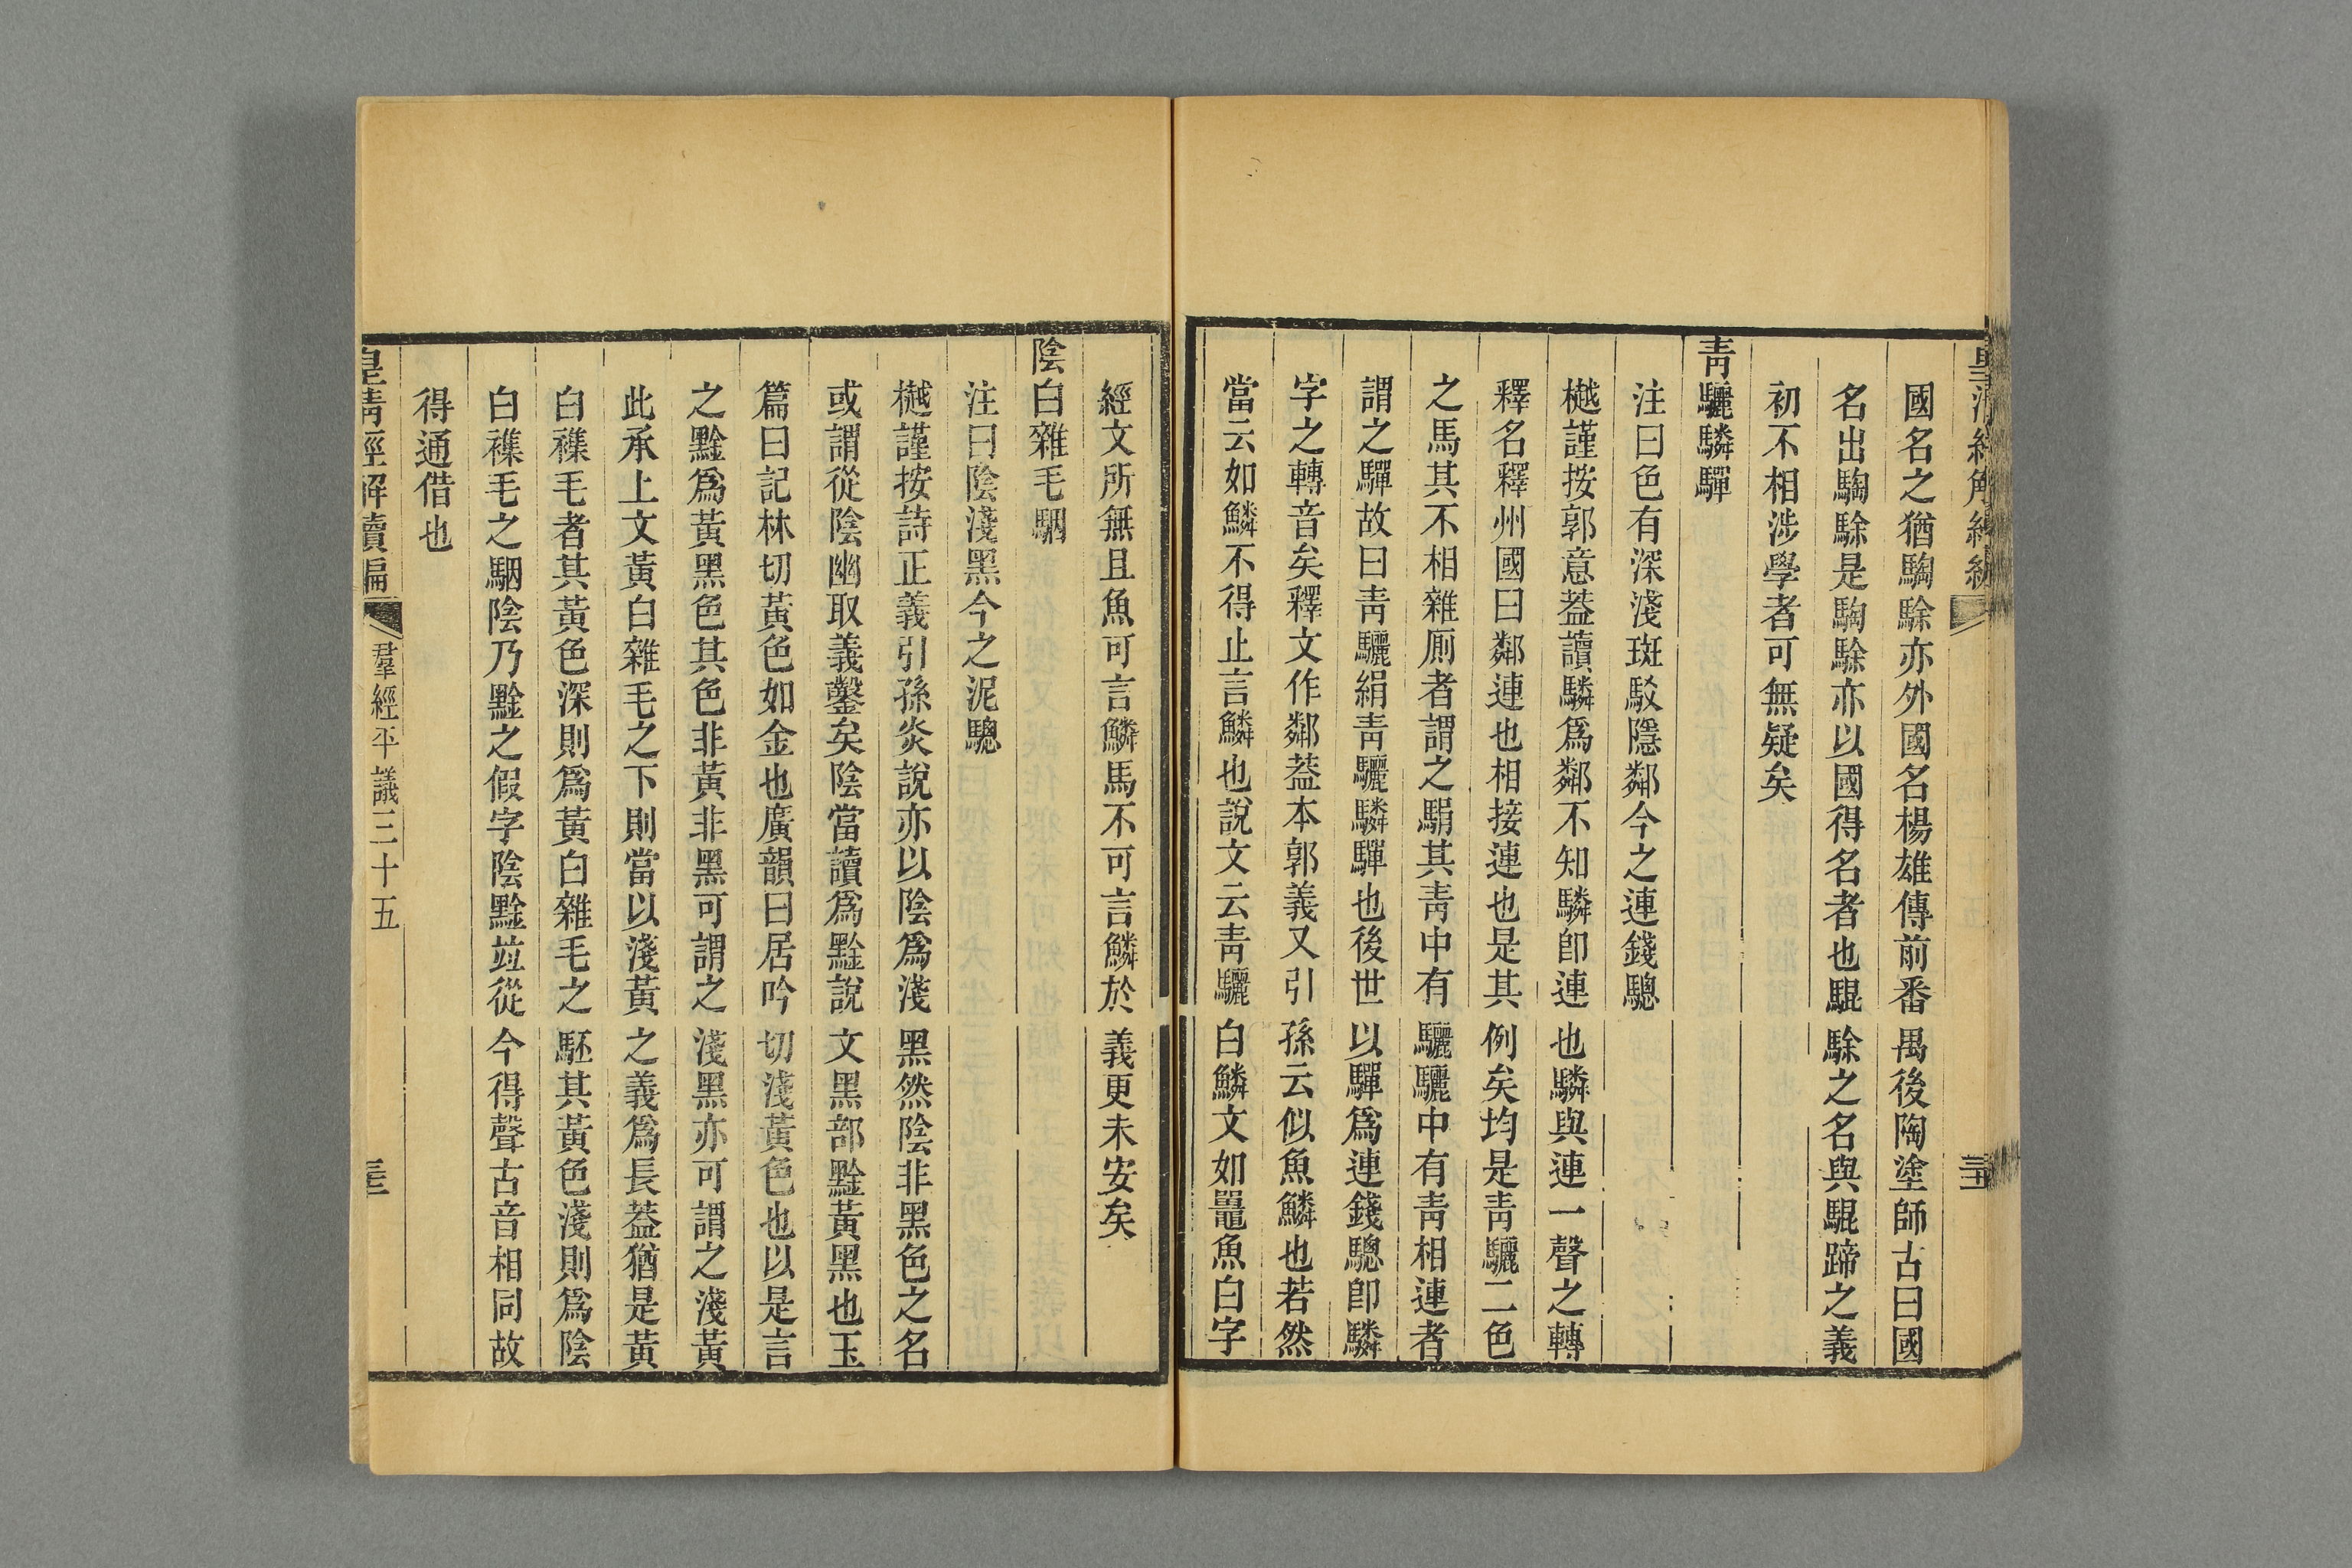 國名之猶騊駼亦外國名楊雄傳前番禺後陶塗師古曰國
名出騊駼是騊駼亦以國得名者也騉駼之名與騉蹄之義
初不相涉學者可無疑矣
青驪驎驒
注曰色有深淺斑駁隱粼今之連錢驄
樾謹按郭意葢讀驎爲粼不知驎卽連也驎與連一聲之轉
釋名釋州國曰鄰連也相接連也是其例矣均是青驪二色
之馬其不相雜厠者謂之駽其青中有驪驪中有青相連者
謂之驒故曰青驪絹青驪驎驒也後世以驒爲連錢驄卽驎
字之轉音矣釋文作鄰葢本郭義又引孫云似魚鱗也若然
當云如鱗不得止言鱗也說文云青驪白鱗文如鼉魚白字
經文所無且魚可言鱗馬不可言鱗於義更未安矣
陰白雜毛駰
注曰陰淺黑今之泥驄
樾謹按詩正義引孫炎說亦以陰爲淺黑然陰非黑色之名
或謂從陰幽取義鑿矣陰當讀爲黔說文黑部黔黃黑也玉
篇曰記林切黃色如金也廣韻曰居吟切淺黃色也以是言
之黔爲黃黑色其色非黃非黑可謂之淺黑亦可謂之淺黃
此承上文黃白雜毛之下則當以淺黃之義爲長葢猶是黃
白襍毛者其黃色深則爲黃白雜毛之駓其黃色淺則爲陰
白襍毛之駰陰乃黔之假字陰黔竝從今得聲古音相同故
得通借也
皇清經解續編
羣經平議三十五